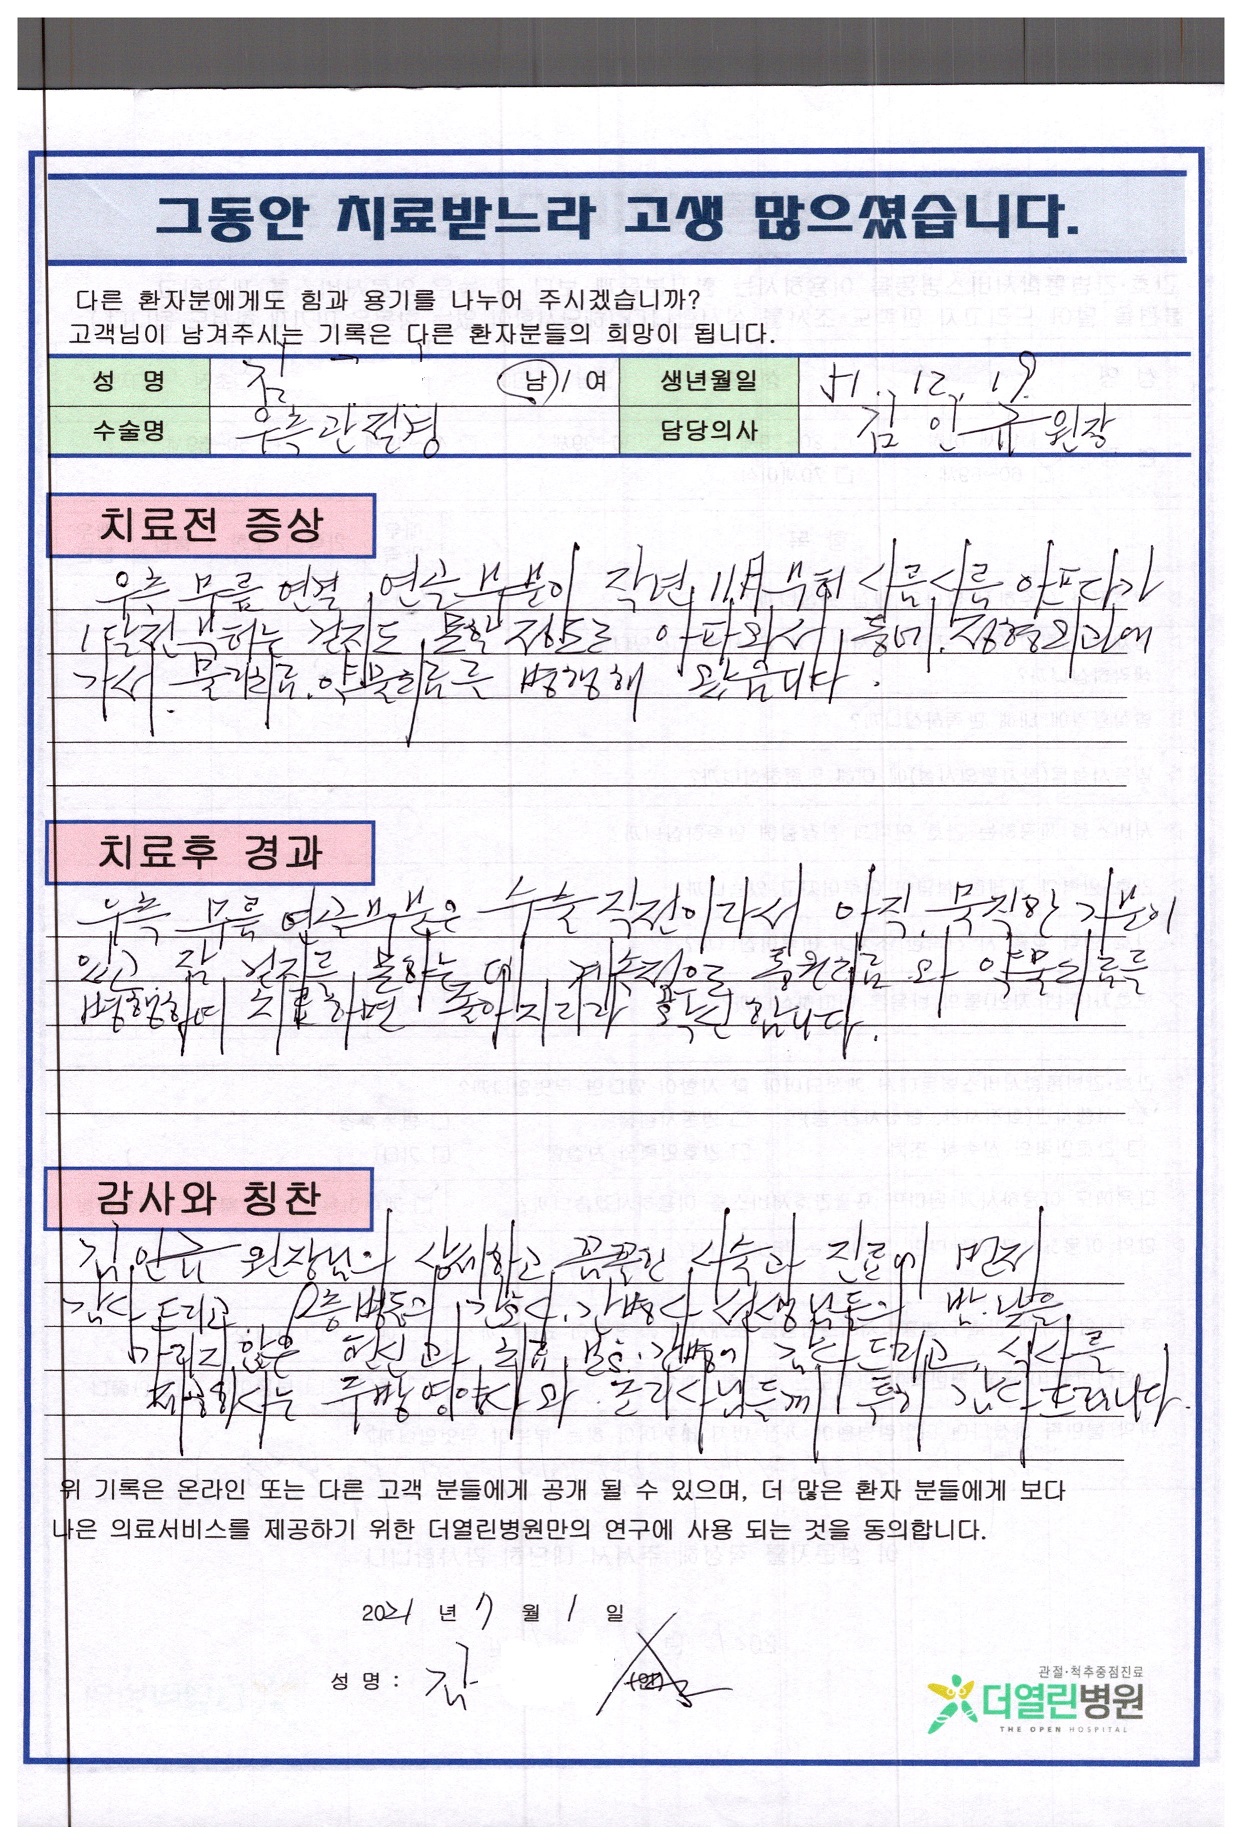 그동안 치료받느라 고생 많으셨습니다.
다른 환자분에게도 힘과 용기를 나누어 주시겠습니까?
고객님이 남겨주시는 기록은 다른 환자분들의 희망이 됩니다.
성 명 김 남 / 여 생년월일 51. 12. 19
수술명 우측관절경 담당의사 김인규 원장
치료전 증상
우측 무릎 연결 연골부분이 작년 11月부터 시름시름 아프다가
1달전부터는 걷지도 못할 정도로 아파와서 동네 정형외과에
가서 물리치료, 약물치료를 병행해 왔습니다.
치료후 경과
우측 무릎 연골부분은 수술 직전이라서 아직 묵직한 기분이
있고 잘 걷지를 못하는데 계속적으로 통원치료와 약물치료를
병행하며 치료하면 좋아지리라 확신합니다.
감사와 칭찬
김인규 원장님의 상세하고 꼼꼼한 시술과 진료에 먼저
감사드리고 2층병동의 간호사, 간병사 선생님들의 밤.낮을
가리지 않은 헌신과 치료, 간병에 감사드리고, 식사를
제공하시는 주방영양사와 조리사님들께 특히 감사드립니다.
위 기록은 온라인 또는 다른 고객 분들에게 공개 될 수 있으며, 더 많은 환자 분들에게 보다
나은 의료서비스를 제공하기 위한 더열린병원만의 연구에 사용 되는 것을 동의합니다.
2021 년 7 월 1 일
성 명 : 김 (인)
관절·척추중점진료
더열린병원
THE OPEN HOSPITAL